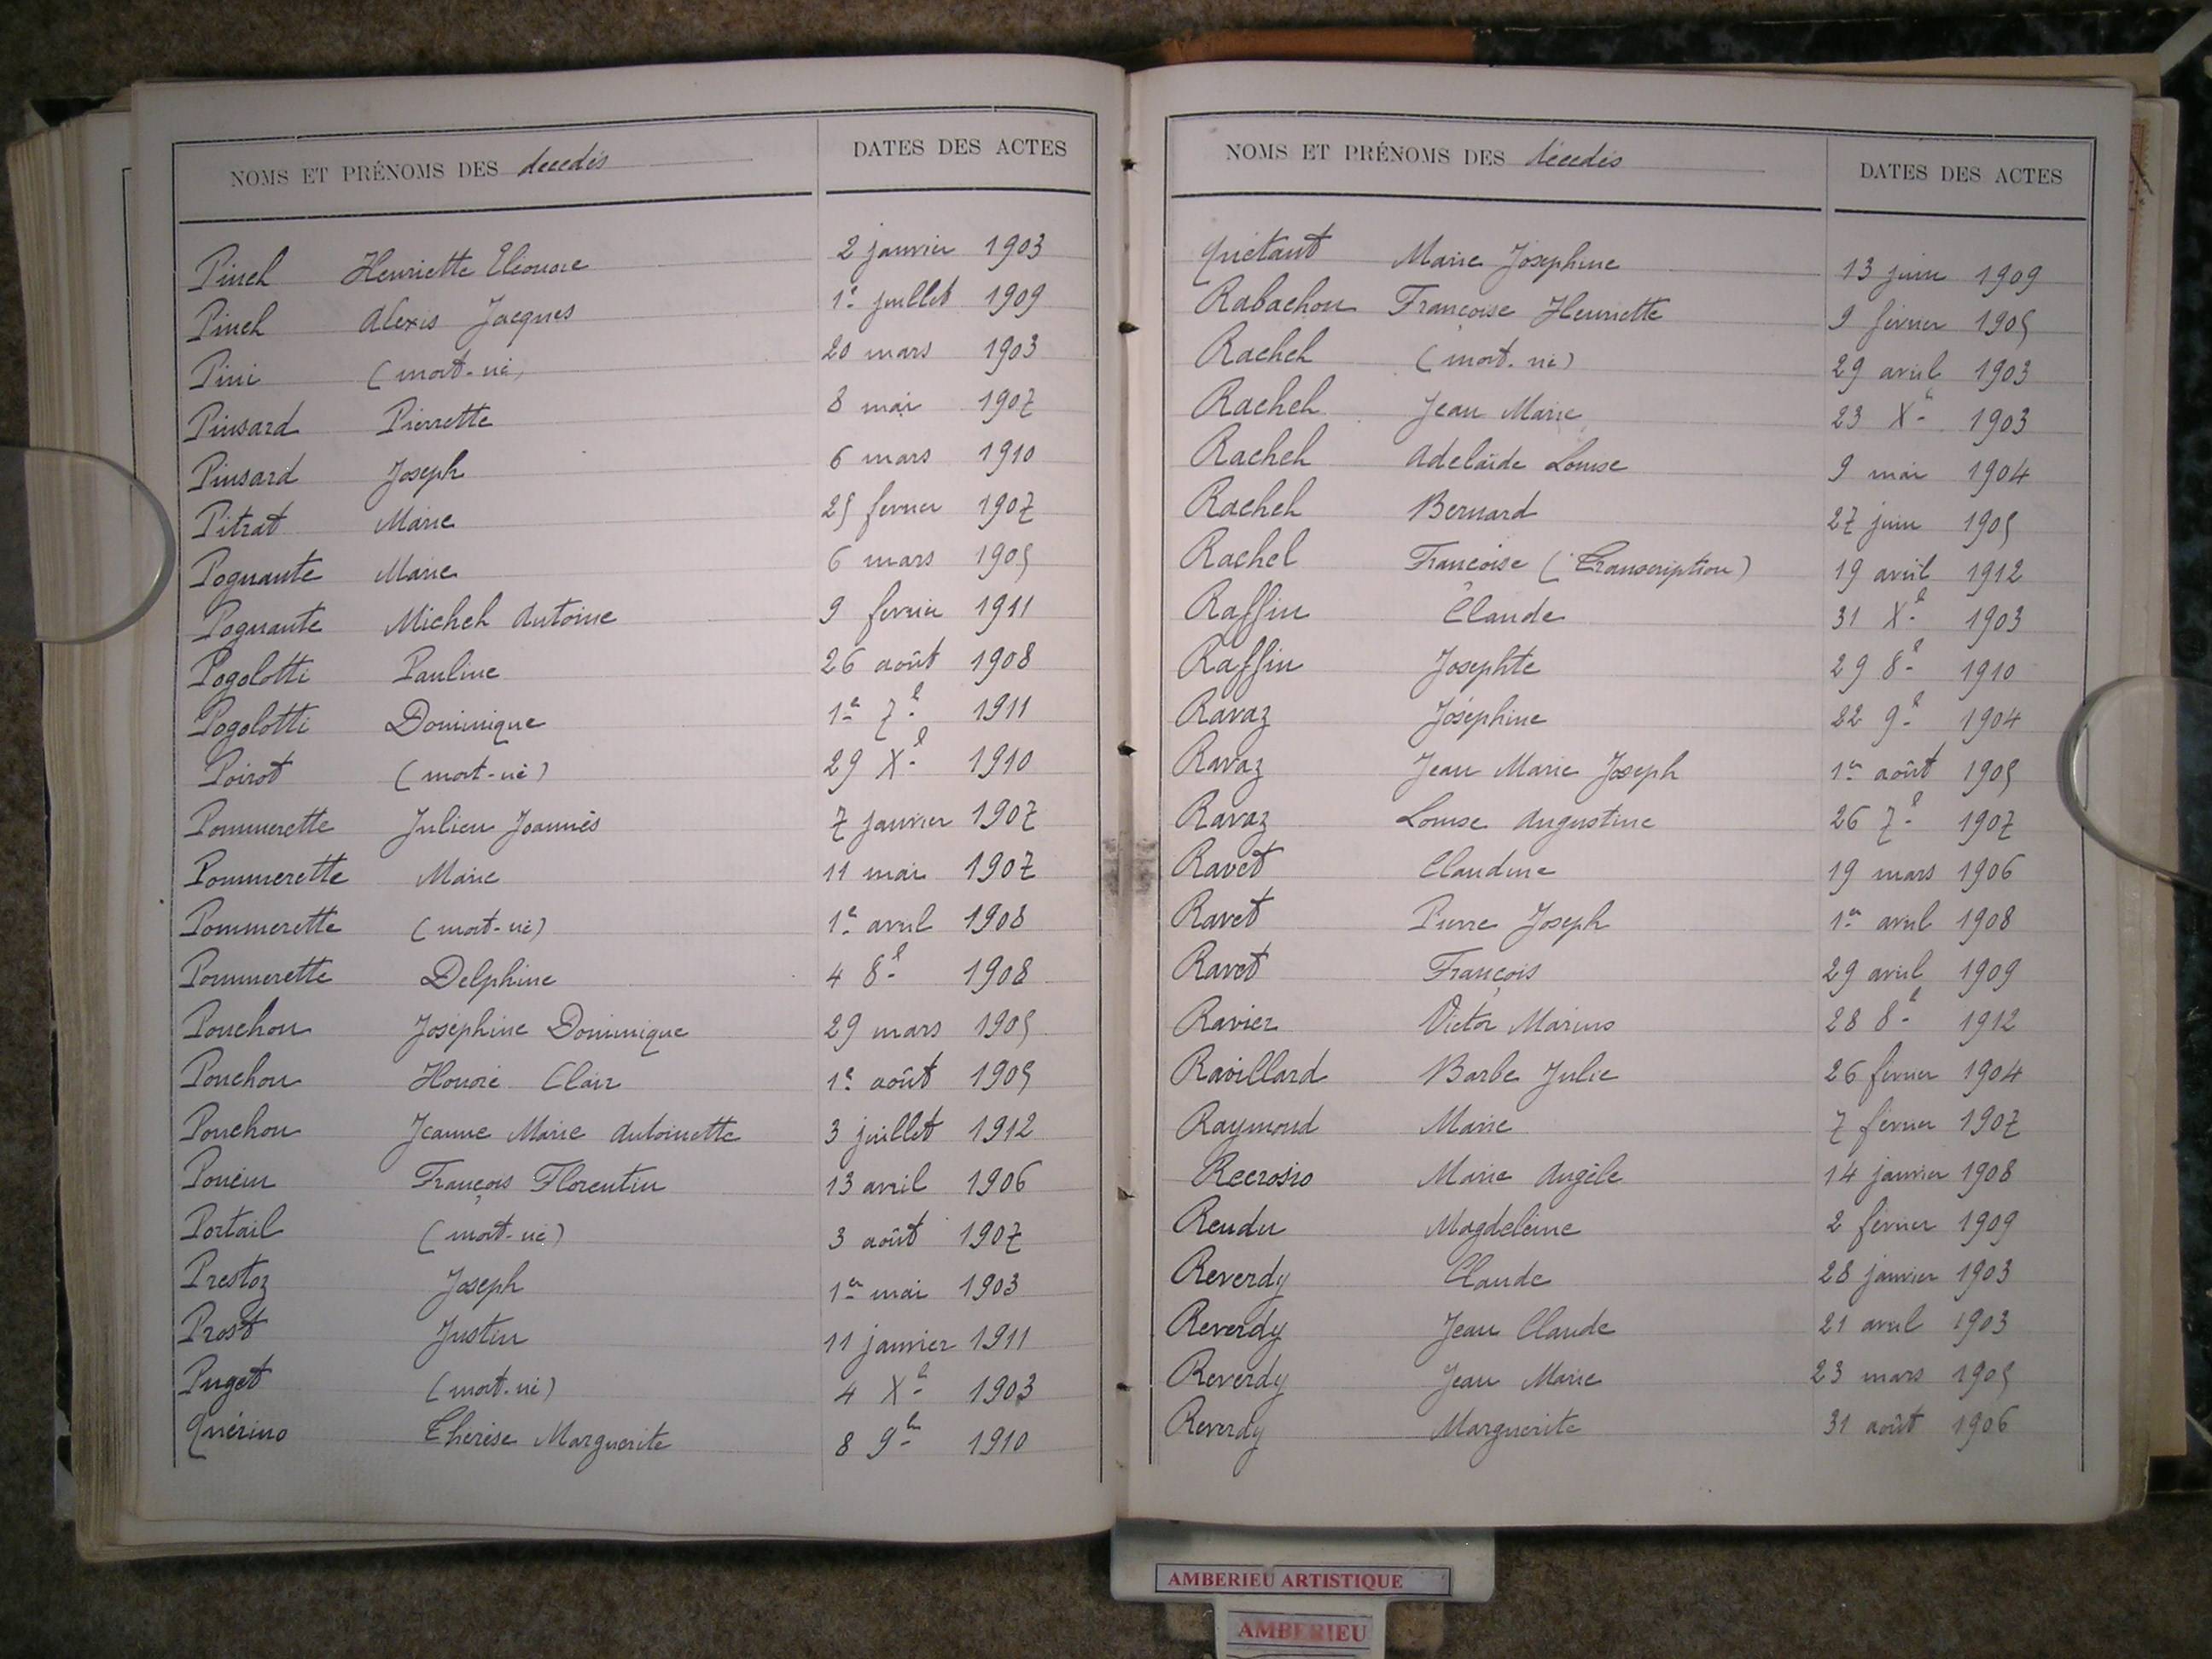 NOMS ET PRÉNOMS DES décédés DATES DES ACTES
Pinel Henriette Eléonore 2 janvier 1903
Pinel Alexis Jacques 1er juillet 1909
Pini (mort-né) 20 mars 1903
Pinsard Pierrette 8 mai 1907
Pinsard Joseph 6 mars 1910
Pitrat Marie 25 février 1907
Pognante Marie 6 mars 1905
Pognante Michel Antoine 9 février 1911
Pogolotti Pauline 26 août 1908
Pogolotti Dominique 1er 7e 1911
Poirot (mort-né) 29 Xe 1910
Pommerette Julien Joannès 7 janvier 1907
Pommerette Marie 11 mai 1907
Pommerette (mort-né) 1er avril 1908
Pommerette Delphine 4 8e 1908
Ponchon Joséphine Dominique 29 mars 1905
Ponchon Honoré Clair 1er août 1905
Ponchon Jeanne Marie Antoinette 3 juillet 1912
Poncin François Florentin 13 avril 1906
Portail (mort-né) 3 août 1907
Prestoz Joseph 1er mai 1903
Prost Justin 11 janvier 1911
Puget (mort-né) 4 Xe 1903
Quérino Thérèse Marguerite 8 9e 1910
NOMS ET PRÉNOMS DES décédés DATES DES ACTES
Quiétant Marie Josephine 13 juin 1909
Rabachon Françoise Henriette 9 février 1905
Rachel (mort-né) 29 avril 1903
Rachel Jean Marie 23 Xe 1903
Rachel Adelaïde Louise 9 mai 1904
Rachel Bernard 27 juin 1905
Rachel Françoise (Transcription) 19 avril 1912
Raffin Claude 31 Xe 1903
Raffin Josephte 29 8e 1910
Ravaz Joséphine 22 9e 1904
Ravaz Jean Marie Joseph 1er août 1905
Ravaz Louise Augustine 26 7e 1907
Ravet Claudine 19 mars 1906
Ravet Pierre Joseph 1er avril 1908
Ravet François 29 avril 1909
Ravier Victor Marius 28 8e 1912
Ravillard Barbe Julie 26 février 1904
Raymond Marie 7 février 1907
Recrosio Marie Angèle 14 janvier 1908
Rendu Magdeleine 2 février 1909
Reverdy Claude 28 janvier 1903
Reverdy Jean Claude 21 avril 1903
Reverdy Jean Marie 23 mars 1905
Reverdy Marguerite 31 août 1906
AMBERIEU ARTISTIQUE
AMBERIEU